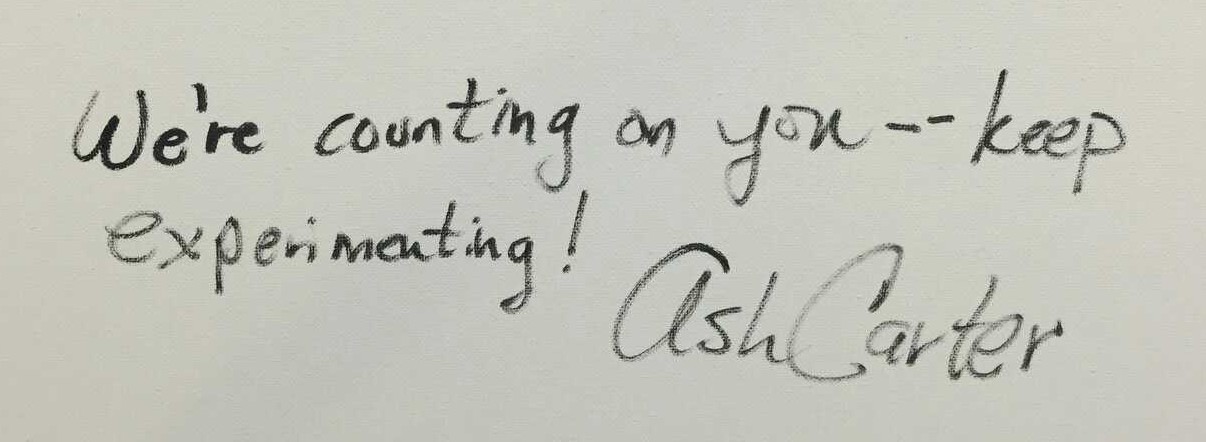 We're counting on you -- keep
experimenting!
Ash Carter